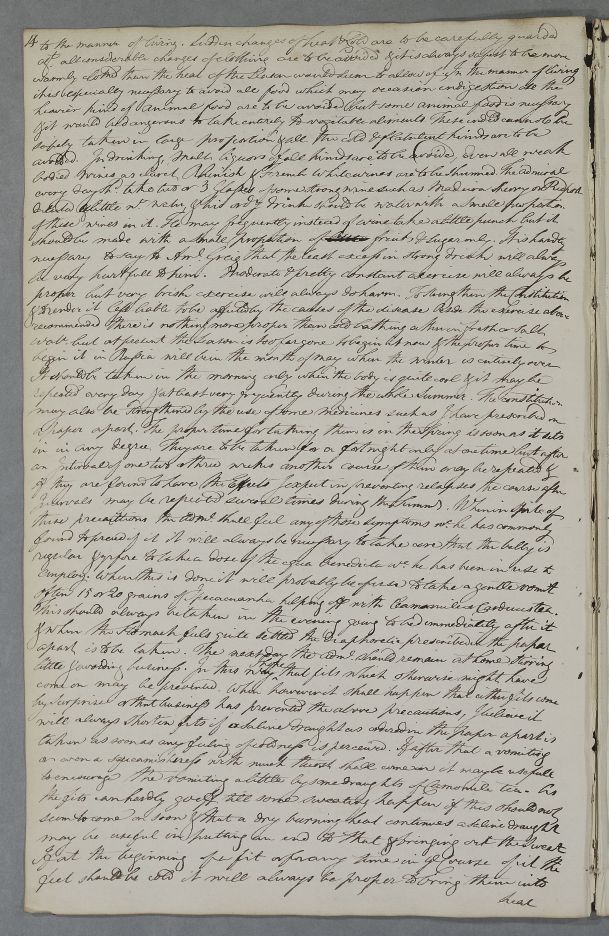 14 to the manner of living. Sudden changes of heat & Cold are to be carefully guarded
all considerable changes of clothing are to be avoided & it is always safest to be more
warmly clothed than the heat of the Season would seem to allow of. In the manner of living
it is especially necessary to avoid all food which may occasion indigestion all the
heavier kinds of Animal food are to be avoided but some animal food is necessary
& it would be dangerous to take entirely to vegitable aliments These indeed cannot be
safely taken in large proportion & all the cold & flatulent kinds are to be
avoided. In drinking, Small liquors of all kinds are to be avoided, even all weak
bodied Wines as claret, Rhinish & French White wines are to be shunned. The admiral
every day may take two or 3 glasses of some strong wine such as Madeira Sherry or Red port
diluted a little wt. water & his ordy. drink should be water with a small proportion
of these wines in it. He may frequently instead of wine take a little punch but it
should be made with a small proportion of fruit & Sugar only. It is hardly
necessary to say to Aml. Greig that the least excess in strong drink will always
be very hurtfull to him. Moderate & pretty constant exercise will always be
proper but very brisk exercise will always do harm. To strengthen the Constitution
& to render it less liable to be affected by the causes of the disease beside the exercise above
recommended there is nothing more proper than cold bathing either in fresh or Salt
water but at present the season is too far gone to begin it now & the proper time to
begin it in Russia will be in the month of may when the winter is entirely over
It should be taken in the morning only when the body is quite cool & it may be
repeated every day or at least very frequently during the whole Summer. The constitution
may also be Strengthened by the use of some medicines such as I have prescribed in
Paper apart. The proper time for taking them is in the Spring as soon as it sets
in in any degree. They are to be taken for a fortnight only at one time but after
an interval of one two or three weeks another course of them may be repeated &
if they are found to have the Effects I expect in preventing relapses the course after
Intervals may be repeated several times during the Summer. When in spite of
these precautions the Adml. shall feel any of those symptoms wc. he has commonly
found to preceed it it will always be necessary to take care that the belly is
regular & if before to take a dose of the aqua benedicta wc. he has been in use to
employ. When this is done it will probably be of use to take a gentle vomit
often 15 or 20 grains of Ipecacuanha helping off with Camomile or Carduus tea.
This should always be taken in the evening going to bed immediately after it
& when the Stomach feels quite settled the Diaphoretic prescribed in the paper
apart is to be taken. The next day the Adml. should remain at home having
little & avoiding business. In this way I hope that fits which otherwise might have
come on may be prevented. When however it shall happen that either fits come
by Surprise or that business has prevented the above precautions, I believe it
will always shorten fits if a saline draught as ordered in the paper apart is
taken as soon as any feeling of coldness is perceived. If after that a vomiting
or even a squeamishness with much thirst shall come on it may be usefull
to encourage the vomiting a little by some draughts of Camomile tea. As
the fits can hardly go off till some sweating happen if this should not
seem to come on soon & that a dry burning heat continues a saline draught
may be useful in putting an end to that & bringing out the sweat
If at the beginning of a fit or for any time in the Course of it the
feet should be cold it will always be proper to bring them into
heat